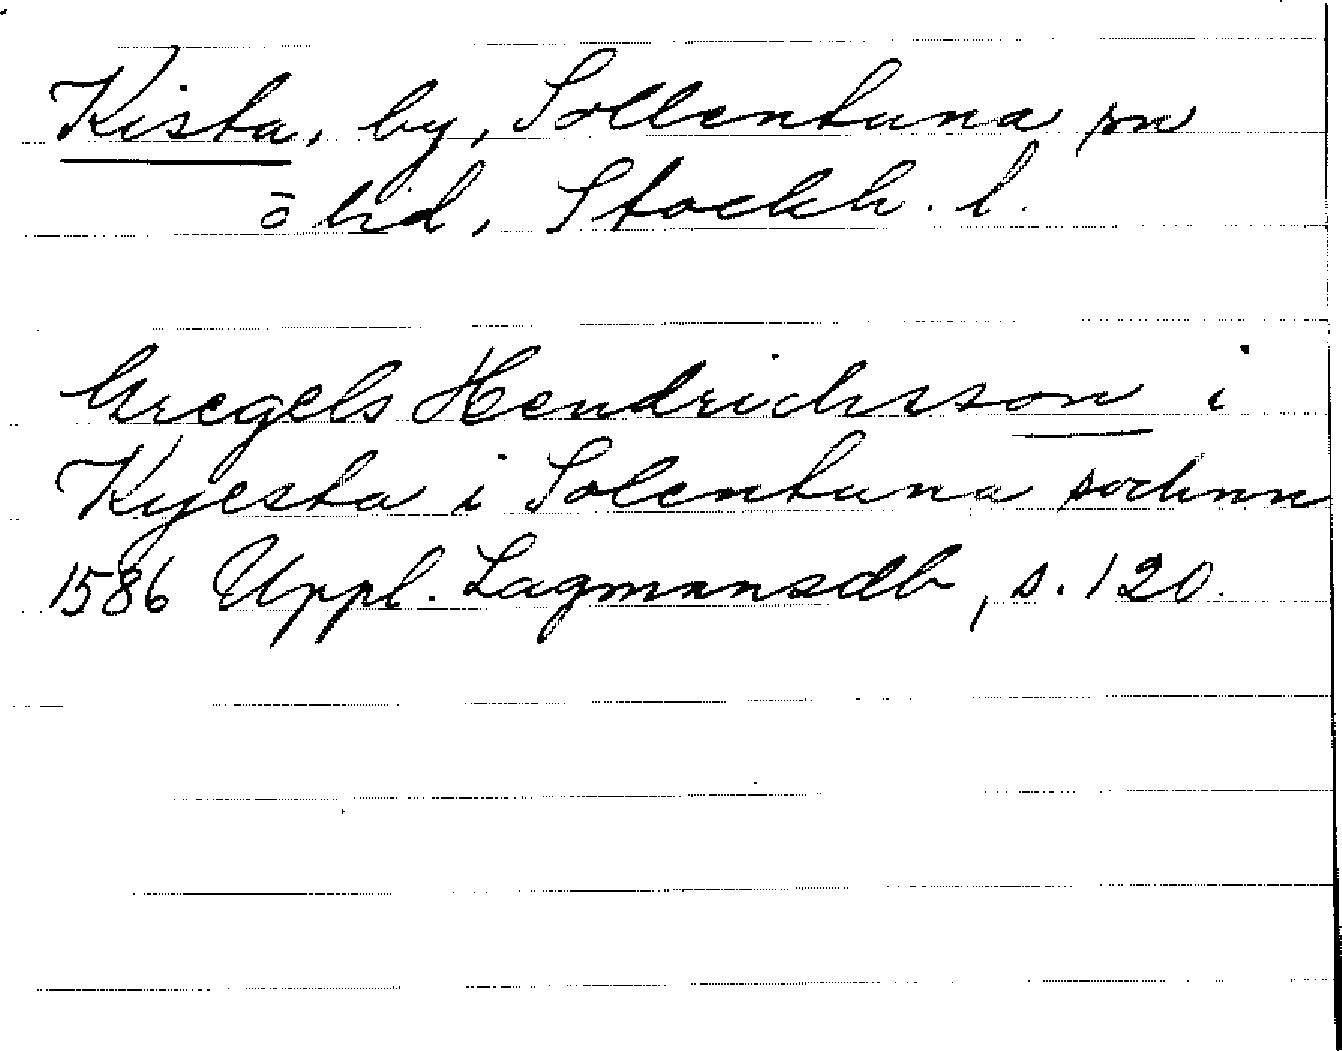 Kista, by, Sollentuna sn
o hd, Stockh. l.
Gregels Hendrichsson i
Kyesta i Solentuna sochnn
1586 Uppl. Lagmansdb, s. 120.